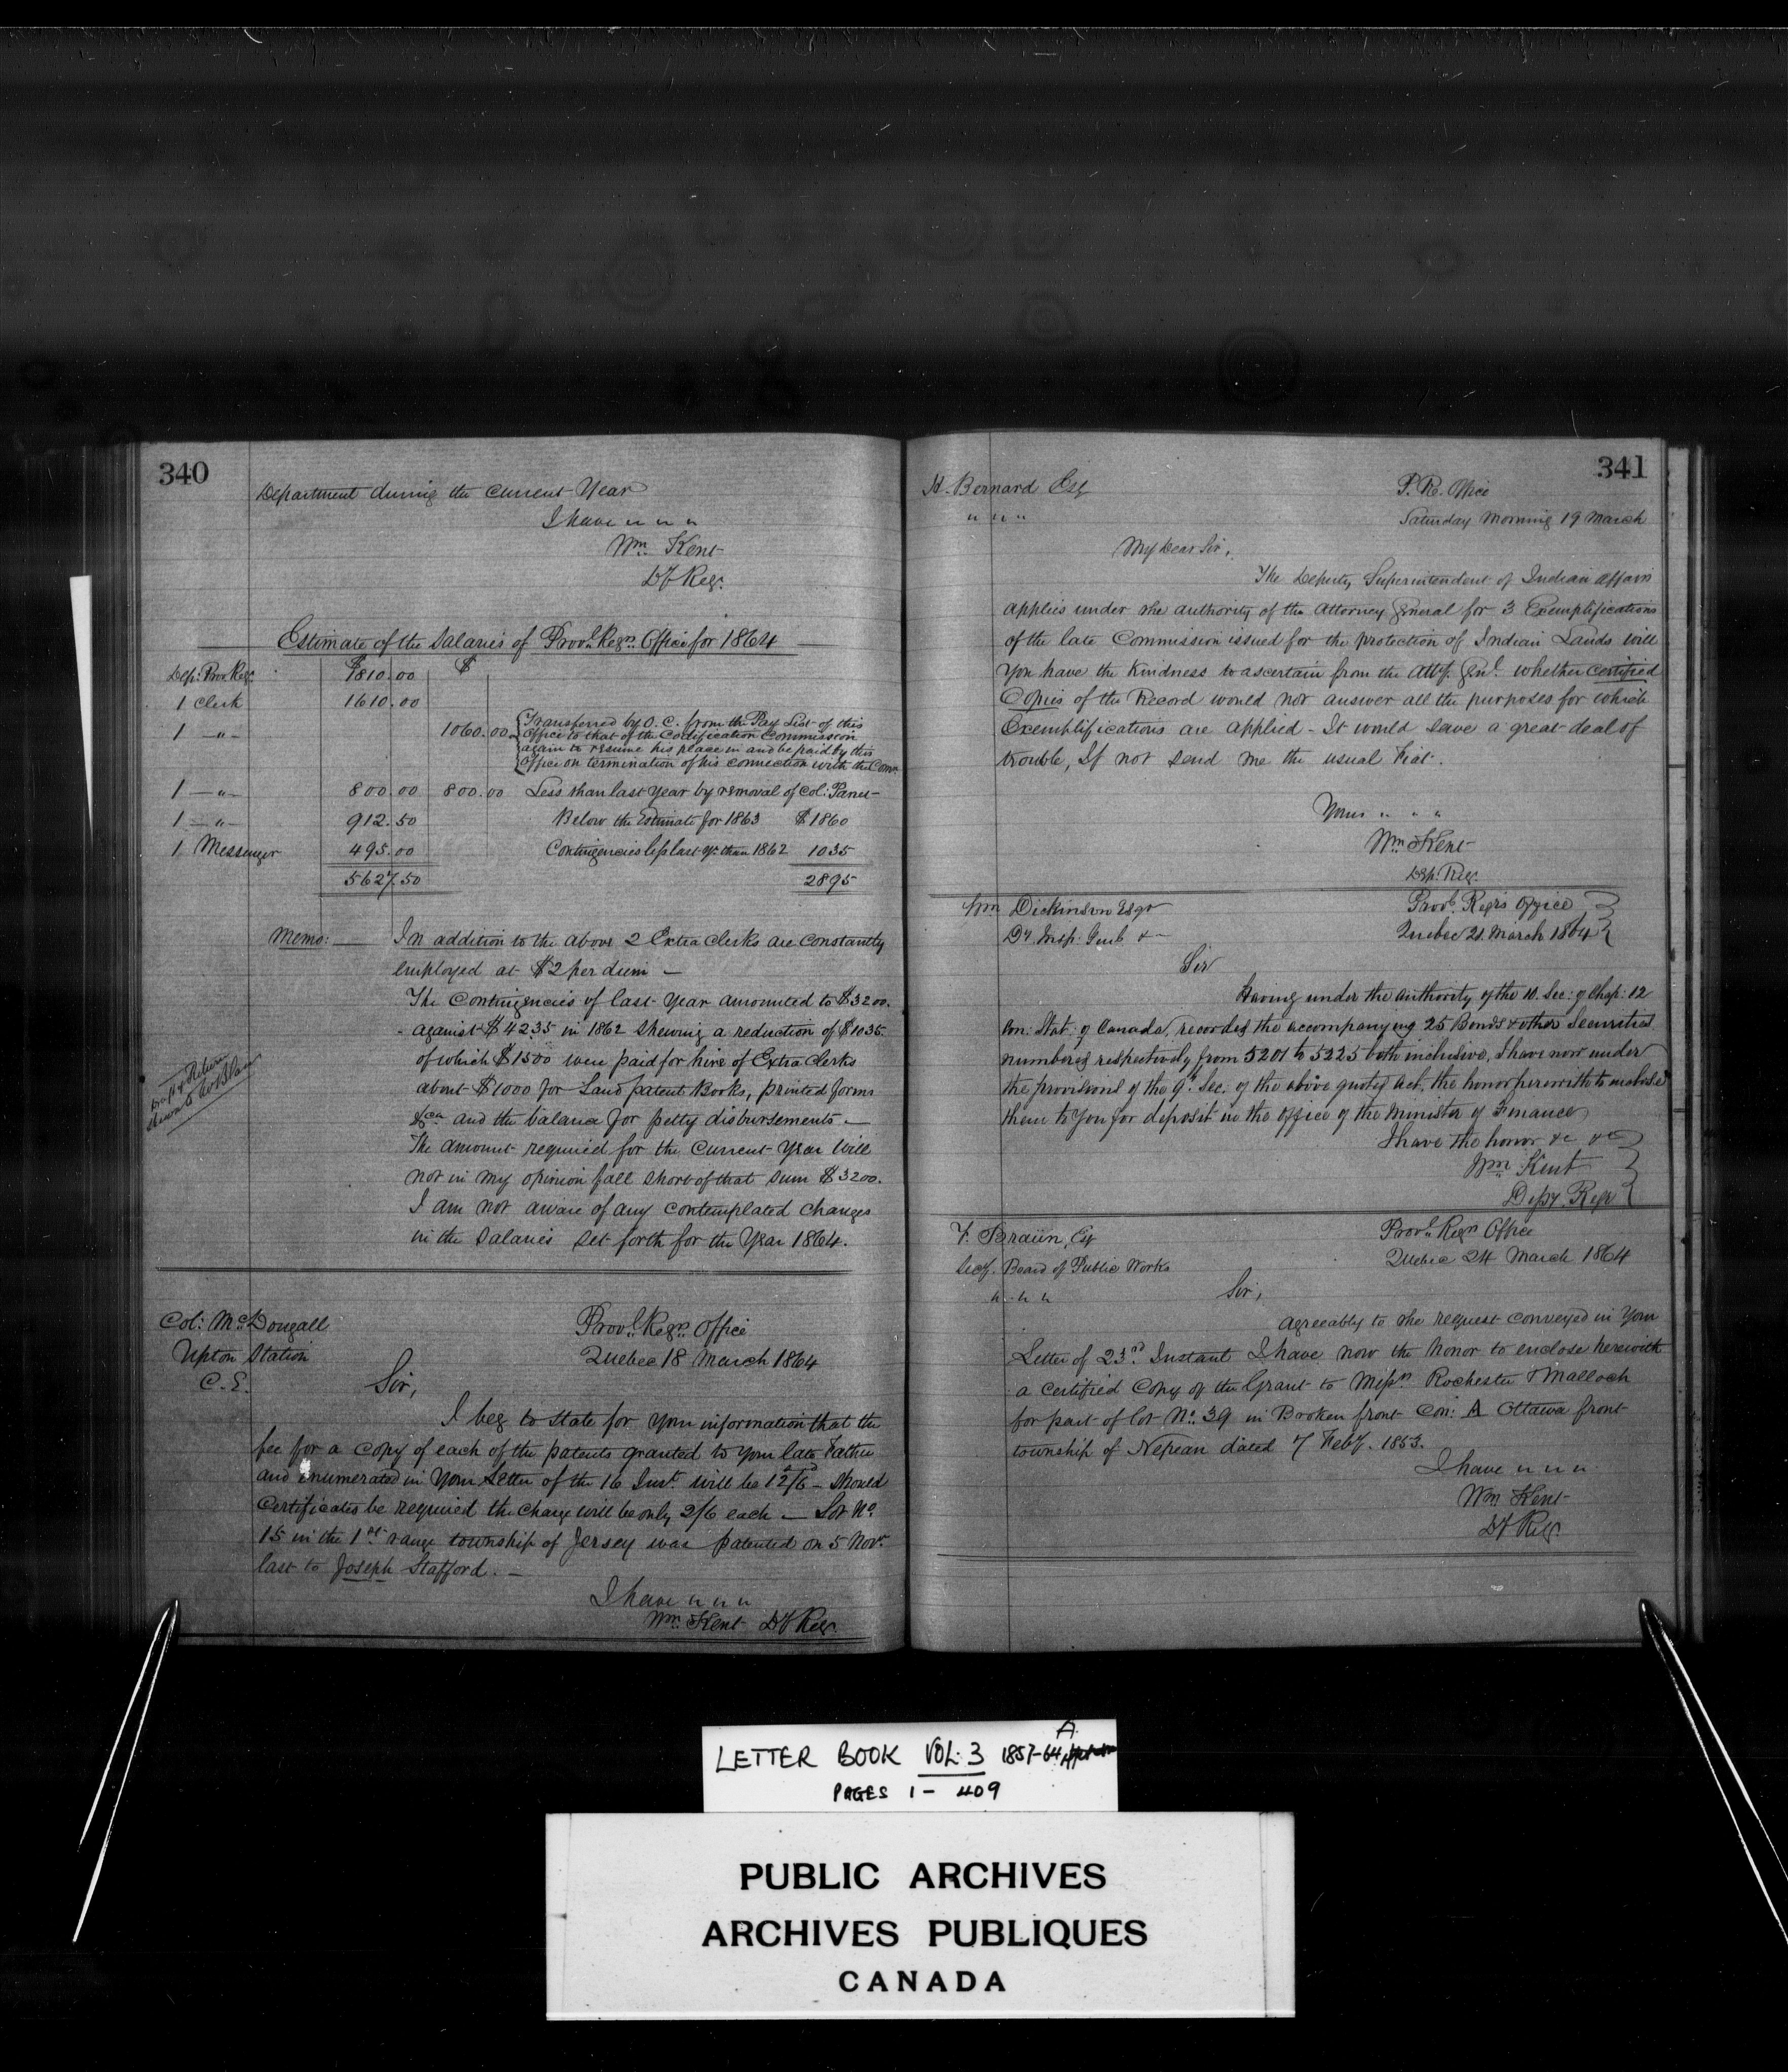 340
Department during the Current Year
I have " " "
Wm. Kent
Dy Regr.
Estimate of the Salaries of Provl. Regrs. Office for 1864
$ $
Dep: Prov. Regr. 1810.00
1 Clerk 1610.00
1 —"— 1060.00 {Transferred by O.C. from the Pay List of this
Office to that of the Codification Commission
again to resume his place in and be paid by this
Office on termination of his connection with the Comn.
1 —"— 800.00 800.00 Less than last Year by removal of Col: Panet
1 —"— 912.50 Below the Estimate for 1863 $1860
1 Messenger 495.00 Contingencies less last Yr. than 1862 1035
5627.50 2895
Memo: — In addition to the above 2 Extra Clerks are Constantly
employed at $2 per diem —
The Contingencies of last Year amounted to $3200.
- against $4235 in 1862 shewing a reduction of $1035.
of which $1500 were paid for hire of Extra Clerks
about $1000 for Land patent Books, printed forms
&ca and the balance for petty disbursements. —
The amount required for the Current Year will
not in my opinion fall short of that sum $3200.
I am not aware of any contemplated changes
in the Salaries set forth for the Year 1864.
Col: McDougall Provl. Regrs. Office
Upton Station Quebec 18 March 1864
C.E. Sir,
I beg to state for Your information that the
fee for a copy of each of the patents granted to Your late Father
and enumerated in Your Letter of the 16 Inst. will be 12/6 – should
Certificates be required the charge will be only 2/6 each — Lot No.
15 in the 1st range township of Jersey was patented on 5 Novr.
last to Joseph Stafford. —
I have " " "
Wm. Kent Dy Regr.
341
H. Bernard Esq P.R. Office
" " " Saturday Morning 19 March
My Dear Sir,
The Deputy Superintendent of Indian Affairs
applies under the authority of the Attorney General for 3 Exemplifications
of the late Commission issued for the protection of Indian Lands will
You have the Kindness to ascertain from the Atty. Genl. whether Certified
Copies of the Record would not answer all the purposes for which
Exemplifications are applied – It would save a great deal of
trouble, If not send me the usual Fiat.
Yours " " "
Wm Kent
Dep. Regr.
Wm Dickinson Esqr Provl. Regrs Office
Dy. Insp. Genl. &c Quebec 21 March 1864
Sir
Having under the authority of the 10. Sec: of Chap: 12
Con: Stat: of Canada, recorded the accompanying 25 Bonds & other Securities
numbered respectively from 5201 to 5225 both inclusive, I have now under
the provisions of the 9th Sec. of the above quoted Act, the honor herewith to enclose
them to You for deposit in the Office of the Minister of Finance
I have the honor &c &c
Wm Kent
Depy. Regr
F. Braün, Esq Provl. Regrs Office
Secy. Board of Public Works Quebec 24 March 1864
" " " Sir,
Agreeably to the request conveyed in Your
Letter of 23rd Instant I have now the honor to enclose herewith
a certified Copy of the Grant to Messrs. Rochester & Malloch
for part of lot No. 39 in Broken front Con: A Ottawa front
township of Nepean dated 7 Feby. 1853.
I have " " "
Wm Kent
Dy Regr.
LETTER BOOK VOL. 3 1857-64 A
PAGES 1 - 409
PUBLIC ARCHIVES
ARCHIVES PUBLIQUES
CANADA